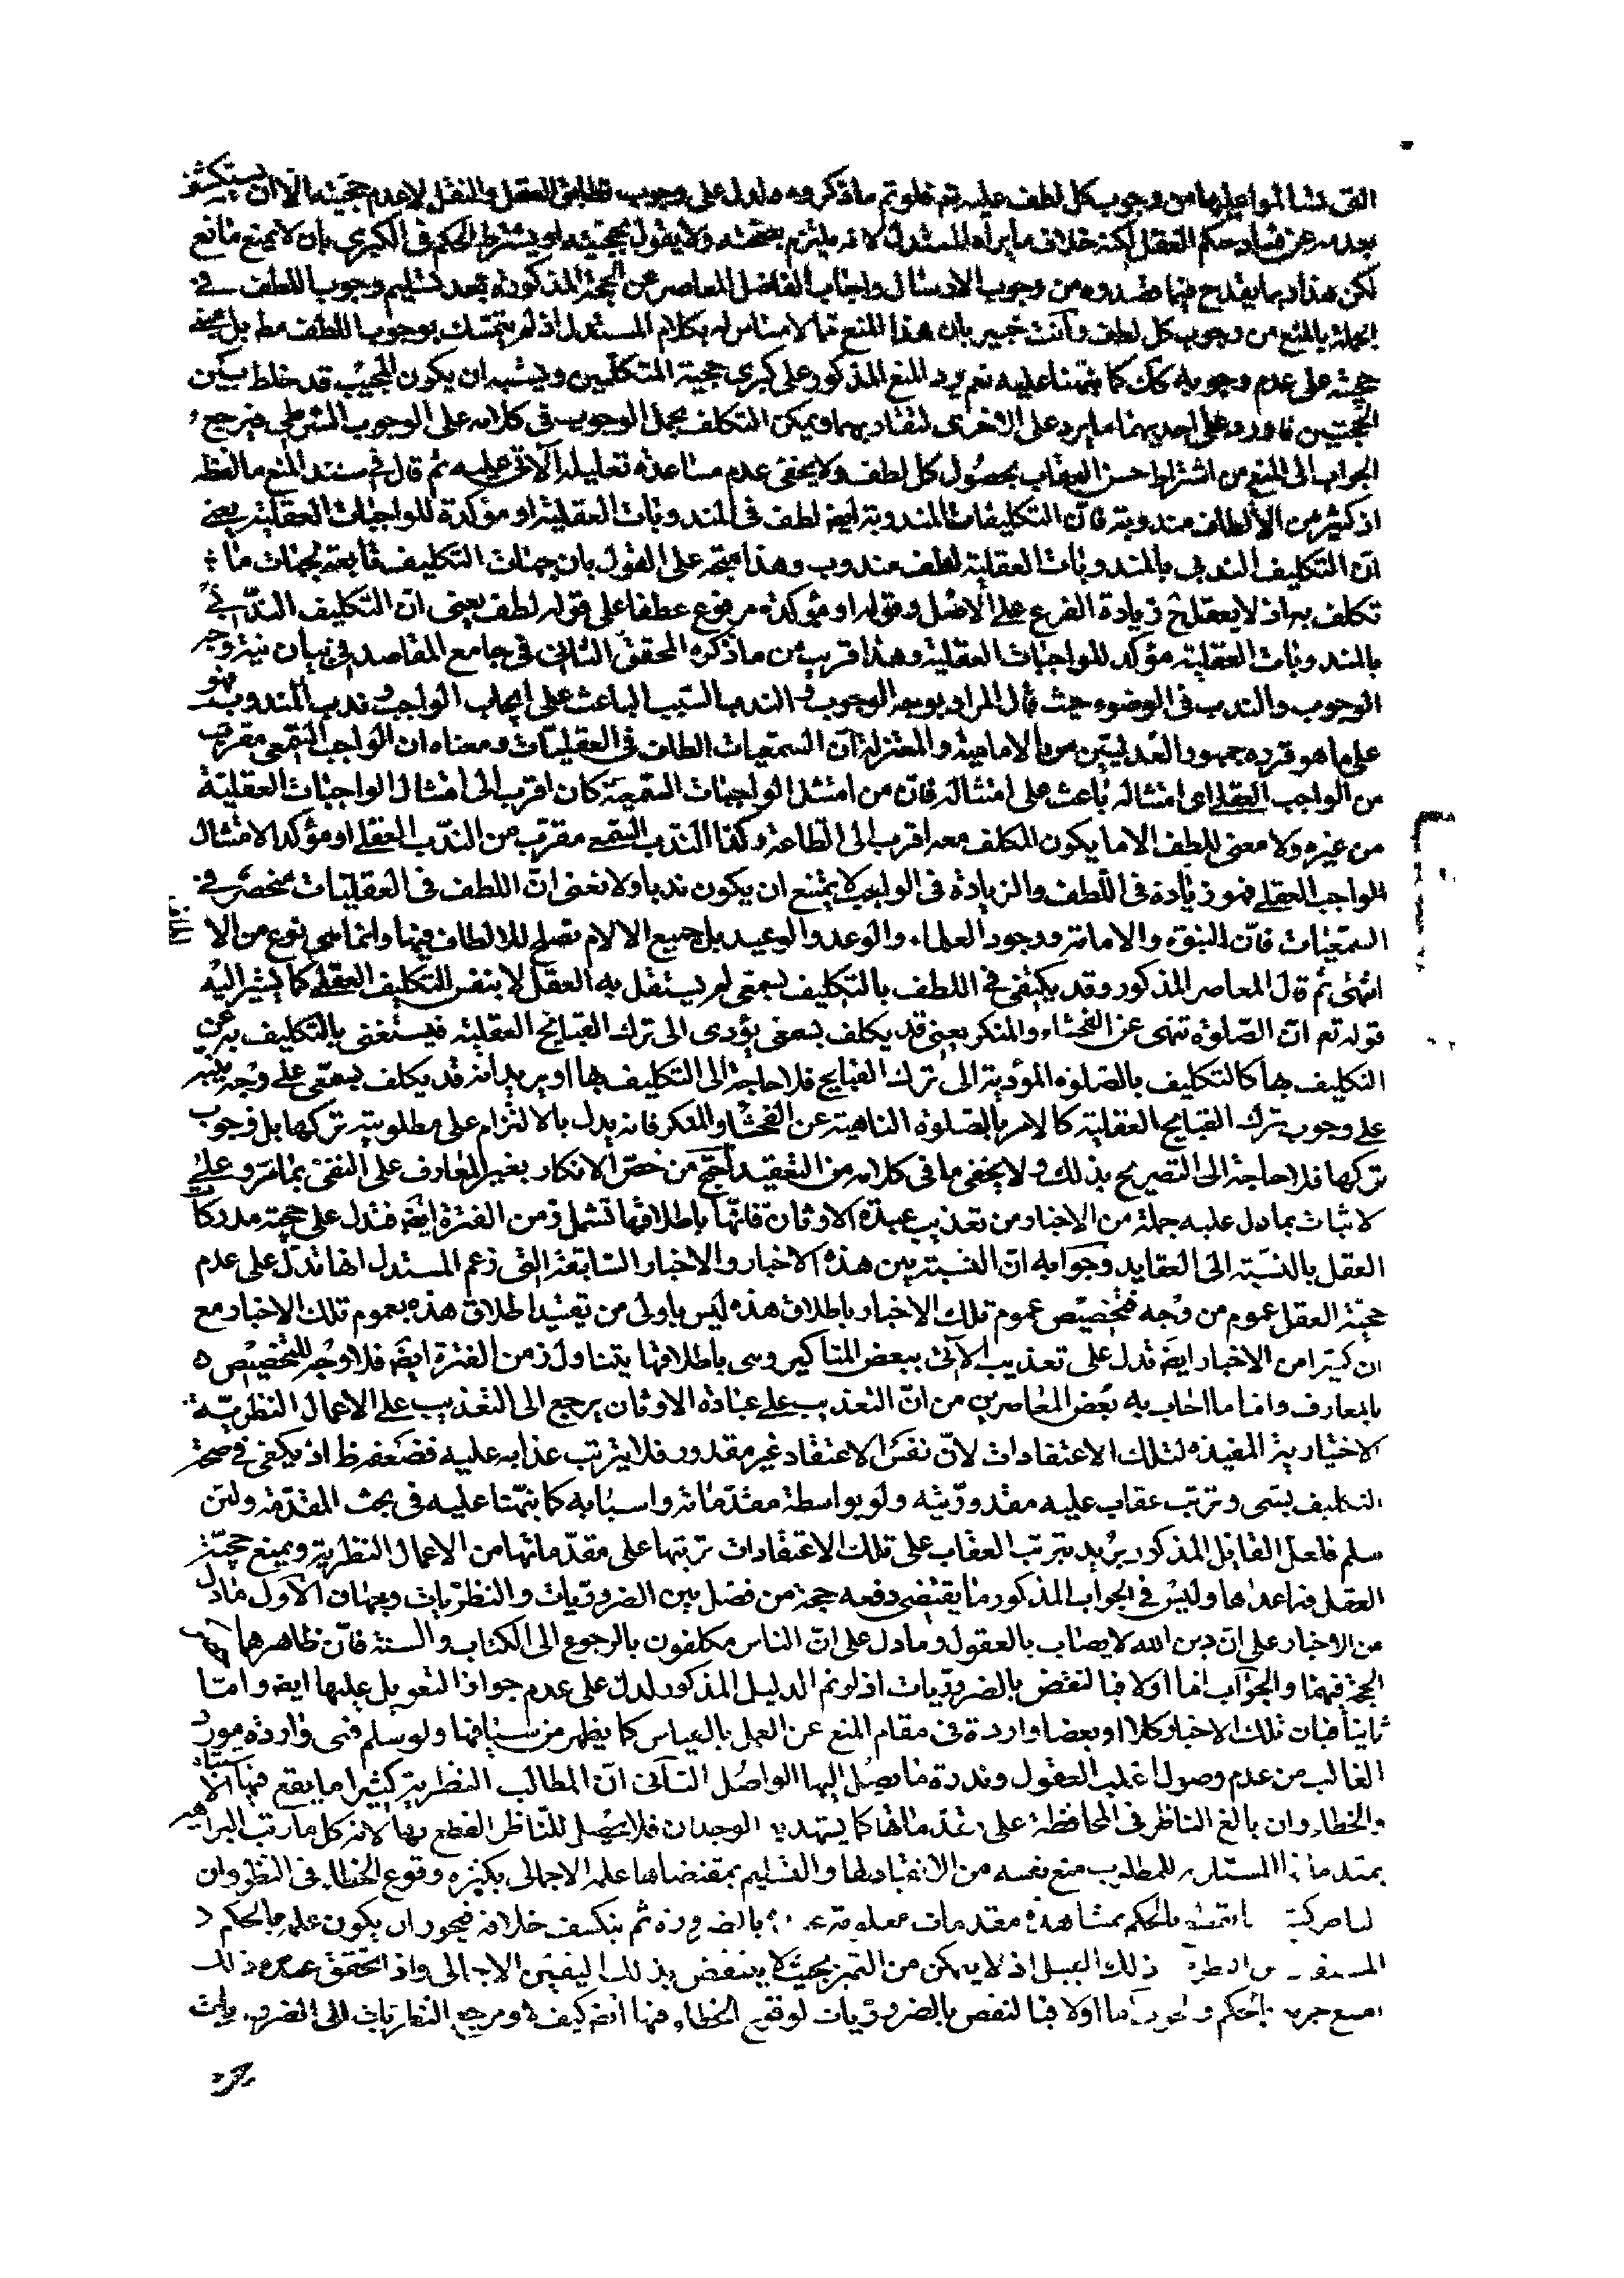 التى تشالموا عليها من وجوب كل لطف عليه تع فلو تم ما ذكروه مادل على وجوب تطابق العقل والنقل لا عدم حجيته الا ان يستكشف
بعدمه عن فساد حكم العقل لكنه خلاف ما يراه المستدل لانه يلتزم بصحته ولا يقول بحجيته او يشترط الحكم فى الكبرى بان لا يمنع مانع
لكن هذا ربما يقدح فيما قصدوه من وجوب الارسال واجاب الفاضل المعاصر عن الحجة المذكورة بعد تسليم وجوب اللطف فى
الجملة بالمنع من وجوب كل لطف وانت خبير بان هذا المنع مما لا مساس له بكلام المستدل اذ لم يتمسك بوجوب اللطف مط بل مبنى
حجته على عدم وجوبه كك كما نبهنا عليه نعم يرد المنع المذكور على كبرى حجية المتكلمين ويشبه ان يكون المجيب قد خلط بين
الحجتين فاورد على احديهما ما يرد على الاخرى لتقاربهما ويمكن التكلف بحمل الوجوب فى كلامه على الوجوب الشرطى فيرجع
الجواب الى المنع من اشتراط حسن العقاب بحصول كل لطف ولا يخفى عدم مساعدة تعليله الآتى عليه ثم قال فى سند المنع ما لفظه
اذ كثير من الألطاف مندوبة فان التكليفات المندوبة ايض لطف فى المندوبات العقلية او مؤكدة للواجبات العقلية يعنى
ان التكليف الندبى بالمندوبات العقلية لطف مندوب وهذا متجه على القول بان جهات التكليف تابعة لجهات ما
تكلف به اذ لا يعقل ح زيادة الفرع على الاصل وقوله او مؤكدة مرفوع عطفا على قوله لطف يعنى ان التكليف الندبى
بالمندوبات العقلية مؤكد للواجبات العقلية وهذا قريب من ما ذكره المحقق الثانى فى جامع المقاصد فى بيان نية وجه
الوجوب والندب فى الوضوء حيث قال المراد بوجه الوجوب والندب السبب الباعث على ايجاب الواجب وندب المندوب فهو
على ما هو قرره جمهور العدليين من الامامية والمعتزلة ان السمعيات الطاف فى العقليات ومعناه ان الواجب السمعى مقرب
من الواجب العقلى اى امتثاله باعث على امتثاله فان من امتثل الواجبات السمعية كان اقرب الى امتثال الواجبات العقلية
من غيره ولا معنى للطف الا ما يكون المكلف معه اقرب الى الطاعة وكذا الندب السمعى مقرب من الندب العقلى او مؤكد لامتثال
الواجب العقلى فهو زيادة فى اللطف والزيادة فى الواجب لا يمتنع ان يكون ندبا ولا نعنى ان اللطف فى العقليات منحصر فى
السمعيات فان النبوة والامامة ووجود العلماء والوعد والوعيد بل جميع الالام تصلح للالطاف فيها وانما هى نوع من الا
لطاف
انتهى ثم قال المعاصر المذكور وقد يكتفى فى اللطف بالتكليف بسمعى لم يستقل به العقل لا بنفس التكليف العقلى كما يشير اليه
قوله تع ان الصلوة تنهى عن الفحشاء والمنكر يعنى قد يكلف بسمعى يؤدى الى ترك القبايح العقلية فيستغنى بالتكليف به عن
التكليف بها كالتكليف بالصلوة المؤدية الى ترك القبايح فلا حاجة الى التكليف بها او يريد انه قد يكلف بسمعى على وجه ينبه
على وجوب ترك القبايح العقلية كالامر بالصلوة الناهية عن الفحشاء والمنكر فانه يدل بالالتزام على مطلوبية تركها بل وجوب
تركها فلا حاجة الى التصريح بذلك ولا يخفى ما فى كلامه من التعقيد احتج من خص الانكار بغير المعارف على النفى بما مر وعلى
لاثبات بما دل عليه جملة من الاخبار من تعذيب عبدة الاوثان فانها باطلاقها تشمل زمن الفترة ايض فتدل على حجية مدركات
العقل بالنسبة الى العقايد وجوابه ان النسبة بين هذه الاخبار والاخبار السابقة التى زعم المستدل انها تدل على عدم
حجية العقل عموم من وجه فتخصيص عموم تلك الاخبار باطلاق هذه ليس باولى من تقييد اطلاق هذه بعموم تلك الاخبار مع
ان كثيرا من الاخبار ايض تدل على تعذيب الآتى ببعض المناكير وهى باطلاقها يتناول زمن الفترة ايض فلا وجه للتخصيص
بالمعارف واما ما اجاب به بعض المعاصرين من ان التعذيب على عبادة الاوثان يرجع الى التعذيب على الاعمال النظرية
الاختيارية المفيدة لتلك الاعتقادات لان نفس الاعتقاد غير مقدور فلا يترتب عذابه عليه فضعفه ظ اذ يكفى فى صحة
التكليف بشى وترتب عقاب عليه مقدوريته ولو بواسطة مقدماته واسبابه كما نبهنا عليه فى بحث المقدمة ولئن
سلم فلعل القايل المذكور يريد بترتب العقاب على تلك الاعتقادات ترتبها على مقدماتها من الاعمال النظرية ويمنع حجية
العقل فيما عداها وليس فى الجواب المذكور ما يقتضى دفعه حجة من فصل بين الضروريات والنظريات وجهان الاول ما دل
من الاخبار على ان دين الله لا يصاب بالعقول وما دل على ان الناس مكلفون بالرجوع الى الكتاب والسنة فان ظاهرهما
الحجة فيهما والجواب اما اولا فبالنقض بالضروريات اذ لو تم الدليل المذكور لدل على عدم جواز التعويل عليها ايض واما
ثانيا فبان تلك الاخبار كلا او بعضا واردة فى مقام المنع عن العمل بالقياس كما يظهر من سياقها ولو سلم فهى واردة مورد
الغالب من عدم وصول اغلب العقول وندرة ما يصل اليها الواصل الثانى ان المطالب النظرية كثيرا ما يقع فيها الاشتباه
والخطاء وان بالغ الناظر فى المحافظة على مقدماتها كما يشهد به الوجدان فلا يحصل للناظر القطع بها لانه كل ما رتب البراهين
بمقدماتها المستلزمة للمطلوب منع نفسه من الانقياد لها والتسليم بمقتضاها علمه الاجمالى بكثرة وقوع الخطاء فى النظر وان
الحكم بمشاهدة مقدمات معلومة بالضرورة ثم ينكشف خلافه فيجوز ان يكون علمه بالحكم
ذلك القبيل اذ لا يتمكن من التميز بحيث لا ينتقض بذلك اليقين الاجمالى واذا تحقق عنده ذلك
امتنع جزمه بالحكم والجواب اما اولا فبالنقض بالضروريات لوقوع الخطاء فيها ايض كيف ومرجع النظريات الى الضرورياث